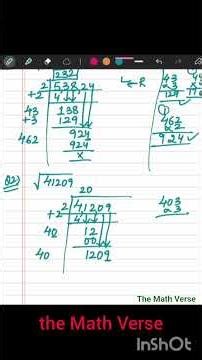 232
2 53824 → R
+2 4↓↓
43 138
+3 129
462 924
924
x
43
x3
129
462
x2
924 ✓
Q2) √41209
20
2 41209
+2 4↓↓
40 12
00↓↓
40 1209
403
x3
The Math Verse
the Math Verse
InShOt